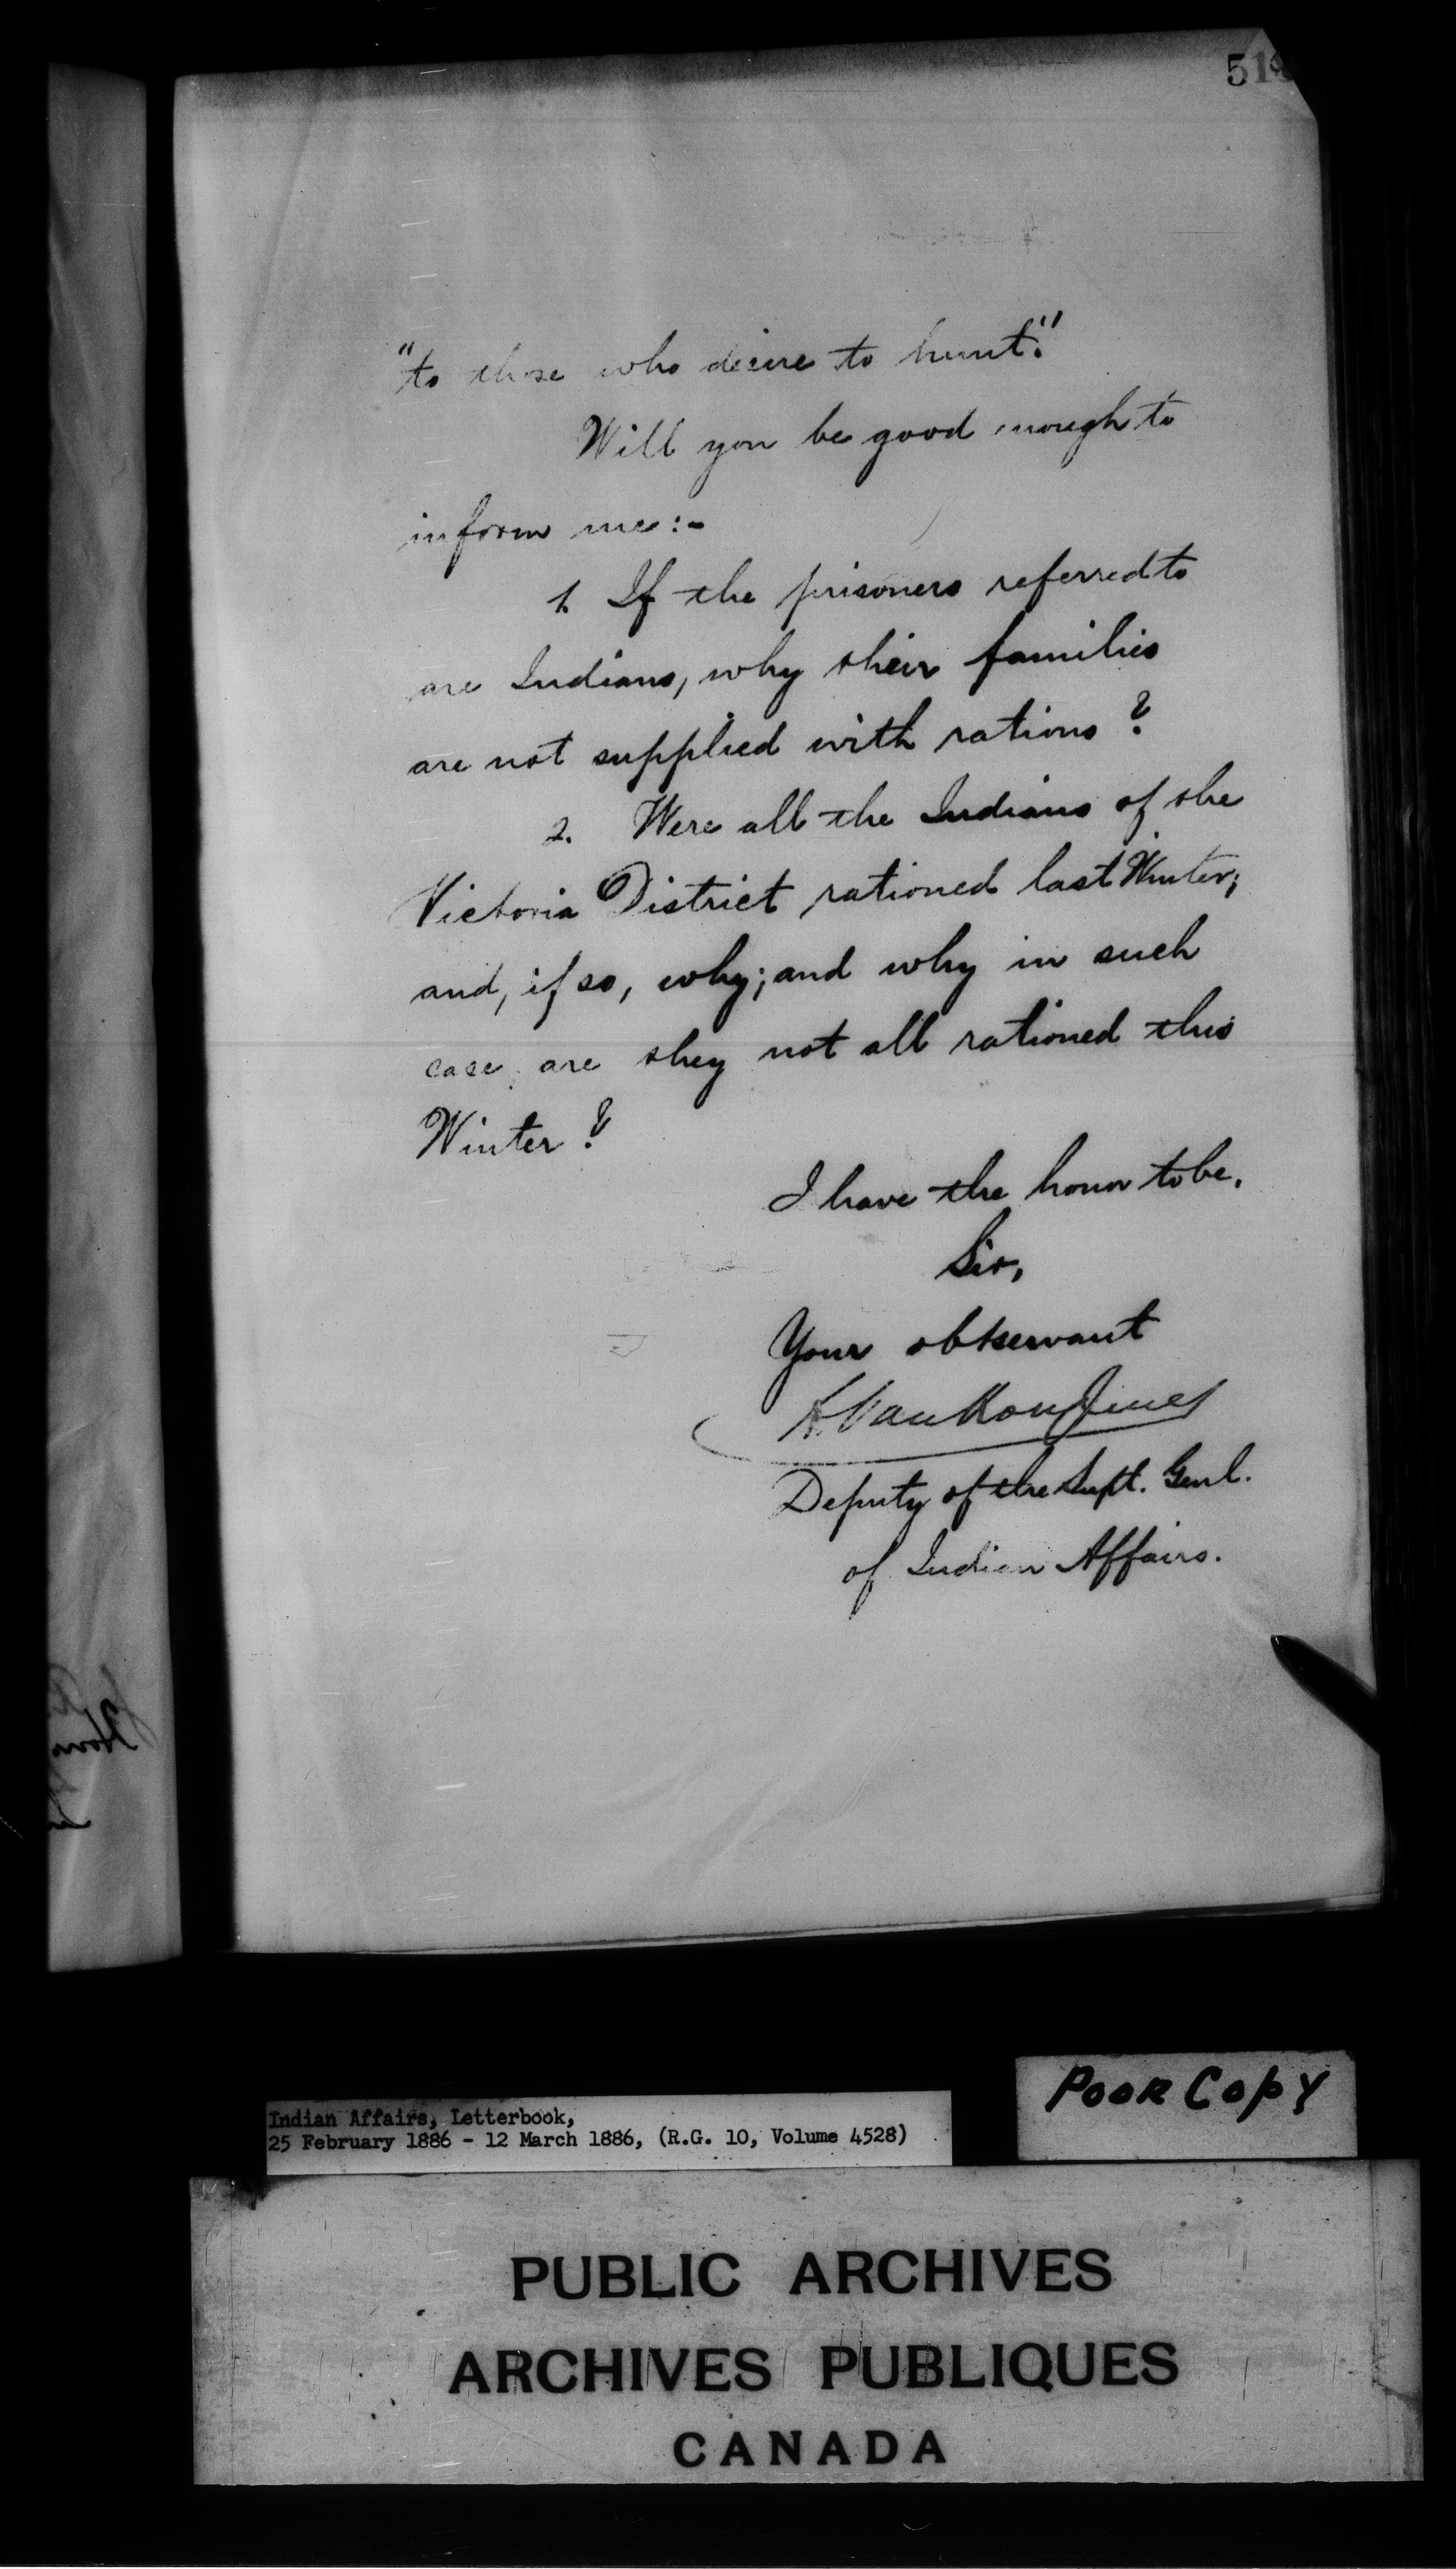 "to those who desire to hunt."
Will you be good enough to
inform me:-
1. If the prisoners referred to
are Indians, why their families
are not supplied with rations?
2. Were all the Indians of the
Victoria District rationed last Winter;
and, if so, why; and why in such
case are they not all rationed this
Winter?
I have the honor to be,
Sir,
Your obt servant
L. VanKoughnet
Deputy of the Supt. Genl.
of Indian Affairs.
Poor Copy
Indian Affairs, Letterbook,
25 February 1886 - 12 March 1886, (R.G. 10, Volume 4528)
PUBLIC ARCHIVES
ARCHIVES PUBLIQUES
CANADA